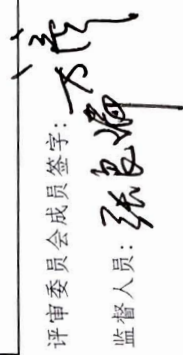 评审委员会成员签字:
监督人员: 张良娟